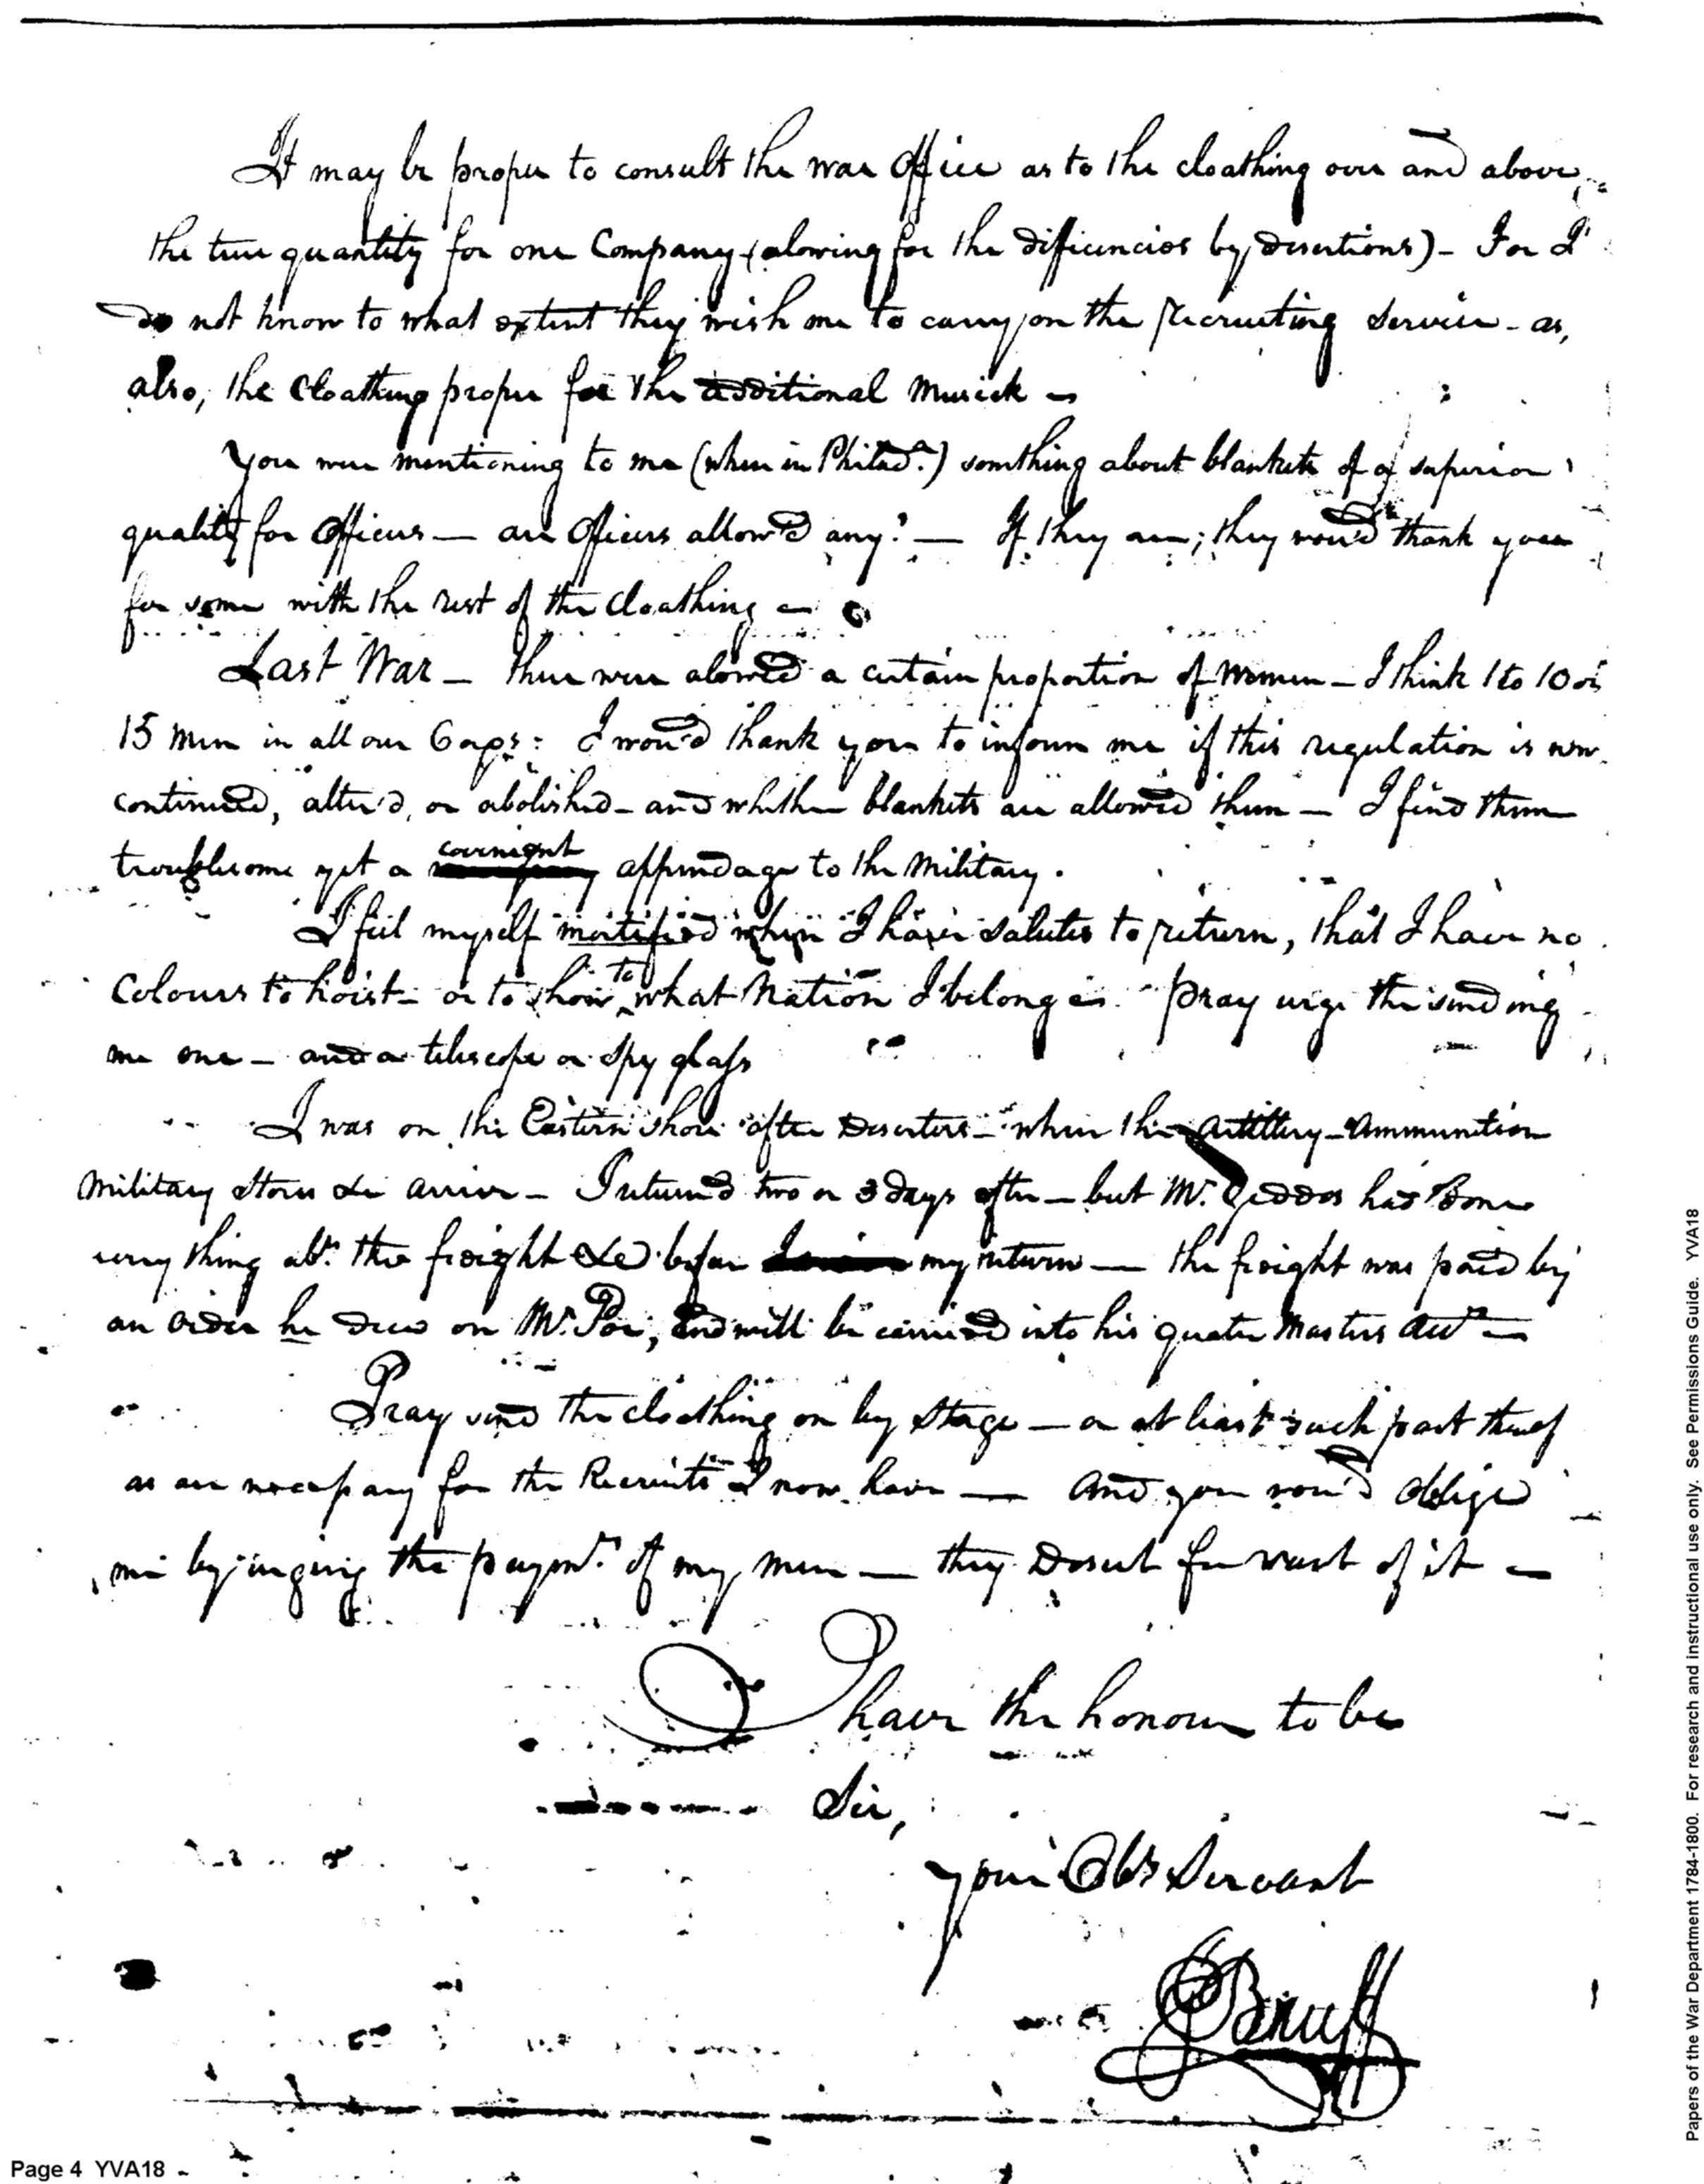 It may be proper to consult the war Office as to the cloathing over and above,
the true quantity for one Company (alowing for the dificiencies by desertions) - For I
do not know to what extent they wish me to carry on the recruiting service - as,
also, the Cloathing proper for the additional Musick -
You were mentioning to me (when in Philad.ª) somthing about blankets of a superior
quality for Officers — are Officers allow'd any? — If they are; they wou'd thank you
for some with the rest of the Cloathing -
Last War — there were alowed a certain proportion of Women - I think 1 to 10 or
15 Men in all our Corps: I wou'd thank you to inform me if this regulation is now
continued, alter'd, or abolished - and whether blankets are allowed them — I find them
troublesome yet a convenient appendage to the Military.
I feel myself mortified when I have salutes to return, that I have no
Colours to hoist - or to show to what Nation I belong - pray urge the sending
me one - and a telescope or spy glass
I was on the Eastern shore after Deserters - when the Artillery - Ammunition
Military Stores &c arrive - I returned two or 3 days after - but Mr. Geddes had done
every thing abt. the freight &c before my return — the freight was paid by
an order he drew on Mr. Poe, and will be carried into his quater Masters Acct -
Pray send the cloathing on by Stage — or at least such part thereof
as are necessary for the Recruits I now have — And you wou'd oblige
me by urging the paymt. of my Men — they Desert for want of it -
I have the honour to be
Sir,
your Obt Servant
Bruff
Page 4 YVA18
Papers of the War Department 1784-1800. For research and instructional use only. See Permissions Guide. YVA18